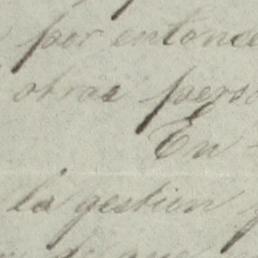 por entonce
otras perso
En
la gestion